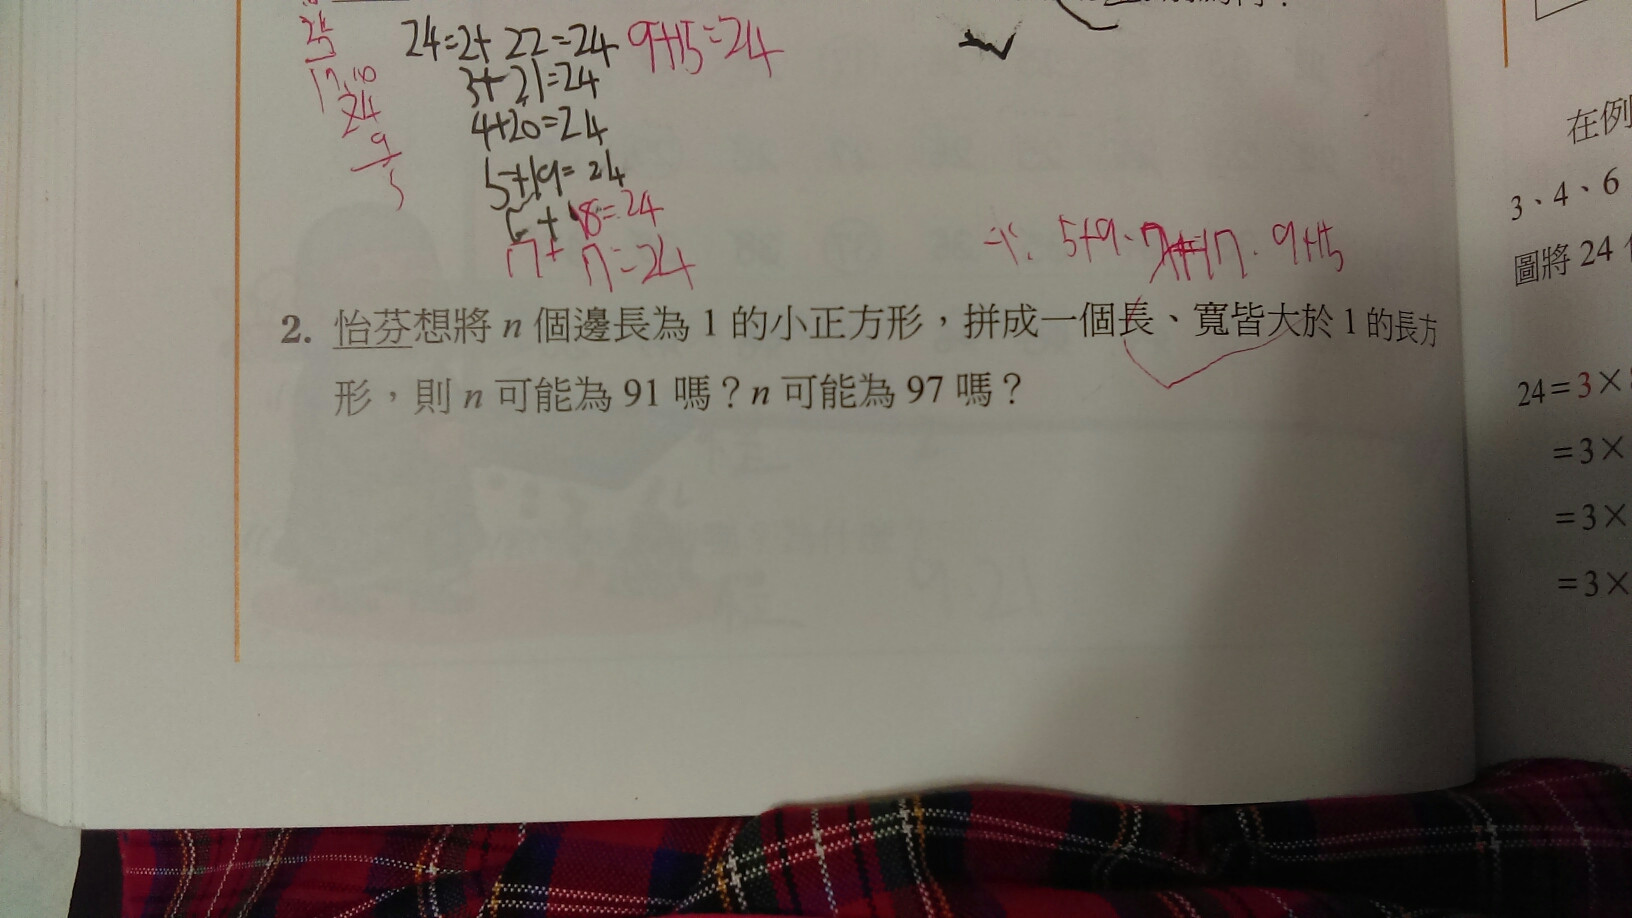 24=2+22=24 9+15=24
3+21=24
24
9
4+20=24
5+19=24
6+18=24
5+9. 7+17. 9+15
2. 怡芬想將 n 個邊長為 1 的小正方形，拼成一個長、寬皆大於 1 的長方
形，則 n 可能為 91 嗎？n 可能為 97 嗎？
在例
3、4、6
圖將 24
24=3×
=3×
=3×
=3×